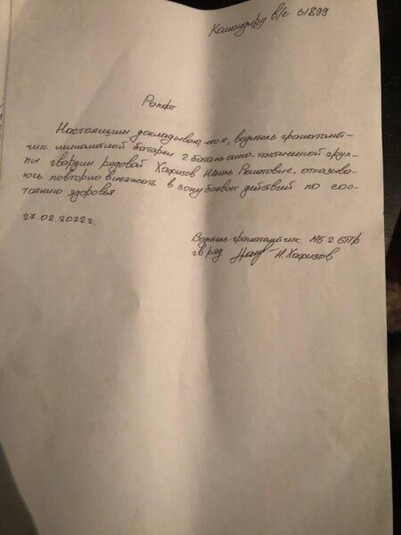 Командиру в/ч 61899
Рапорт
Настоящим докладываю, что я, водитель-гранатомёт-
чик миномётной батареи 2 батальонно-тактической груп-
пы гвардии рядовой Хафизов Наиль Решитович, отказыва-
юсь повторно выезжать в зону боевых действий по сос-
тоянию здоровья
27.02.2022г.
Водитель-гранатомётчик МБ 2 БТГр
гв. ряд. Н. Хафизов